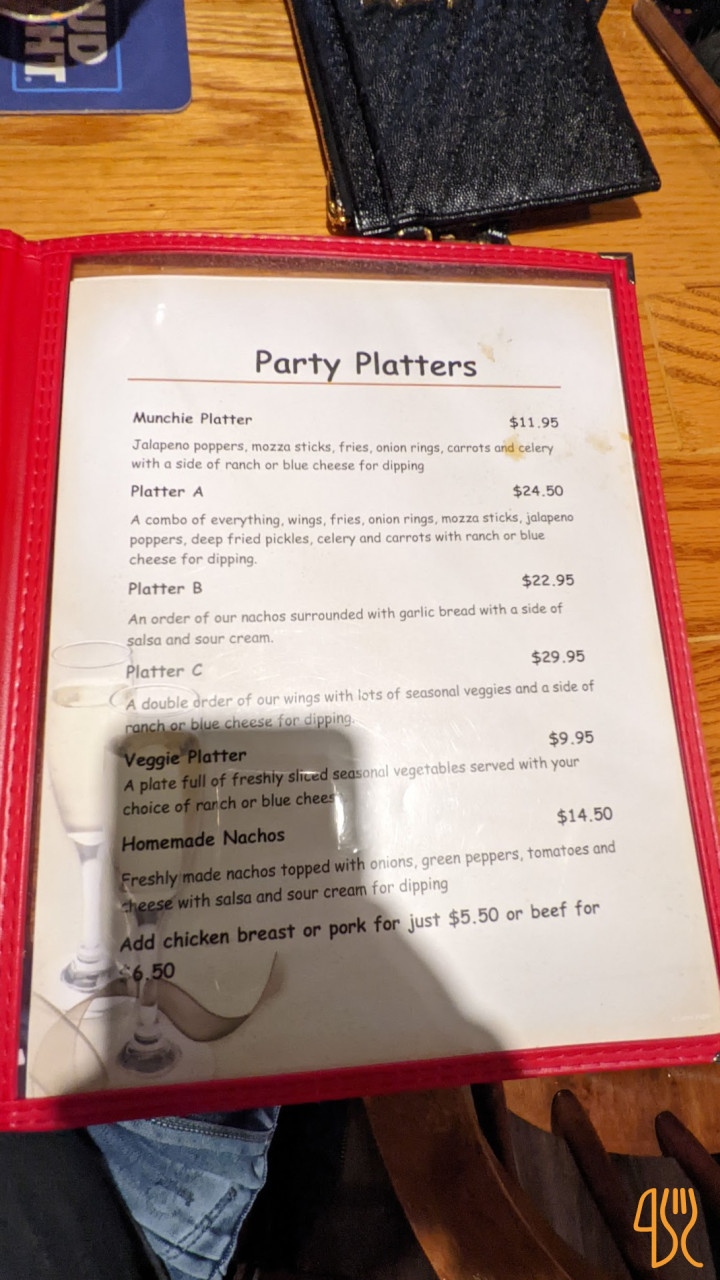 UD
HT.
Party Platters
Munchie Platter $11.95
Jalapeno poppers, mozza sticks, fries, onion rings, carrots and celery
with a side of ranch or blue cheese for dipping
Platter A $24.50
A combo of everything, wings, fries, onion rings, mozza sticks, jalapeno
poppers, deep fried pickles, celery and carrots with ranch or blue
cheese for dipping.
Platter B $22.95
An order of our nachos surrounded with garlic bread with a side of
salsa and sour cream.
Platter C $29.95
A double order of our wings with lots of seasonal veggies and a side of
ranch or blue cheese for dipping.
Veggie Platter $9.95
A plate full of freshly sliced seasonal vegetables served with your
choice of ranch or blue chees
Homemade Nachos $14.50
Freshly made nachos topped with onions, green peppers, tomatoes and
cheese with salsa and sour cream for dipping
Add chicken breast or pork for just $5.50 or beef for
$6.50